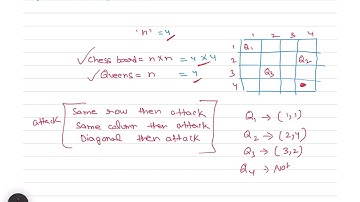 'n' = 4
✓ Chess board = n x n = 4 x 4
✓ Queens = n = 4
1 2 3 4
1 Q1
2 Q2
3 Q3
4
attack
Same row then attack
Same column then attack
Diagonal then attack
Q1 → (1,1)
Q2 → (2,4)
Q3 → (3,2)
Q4 → Not